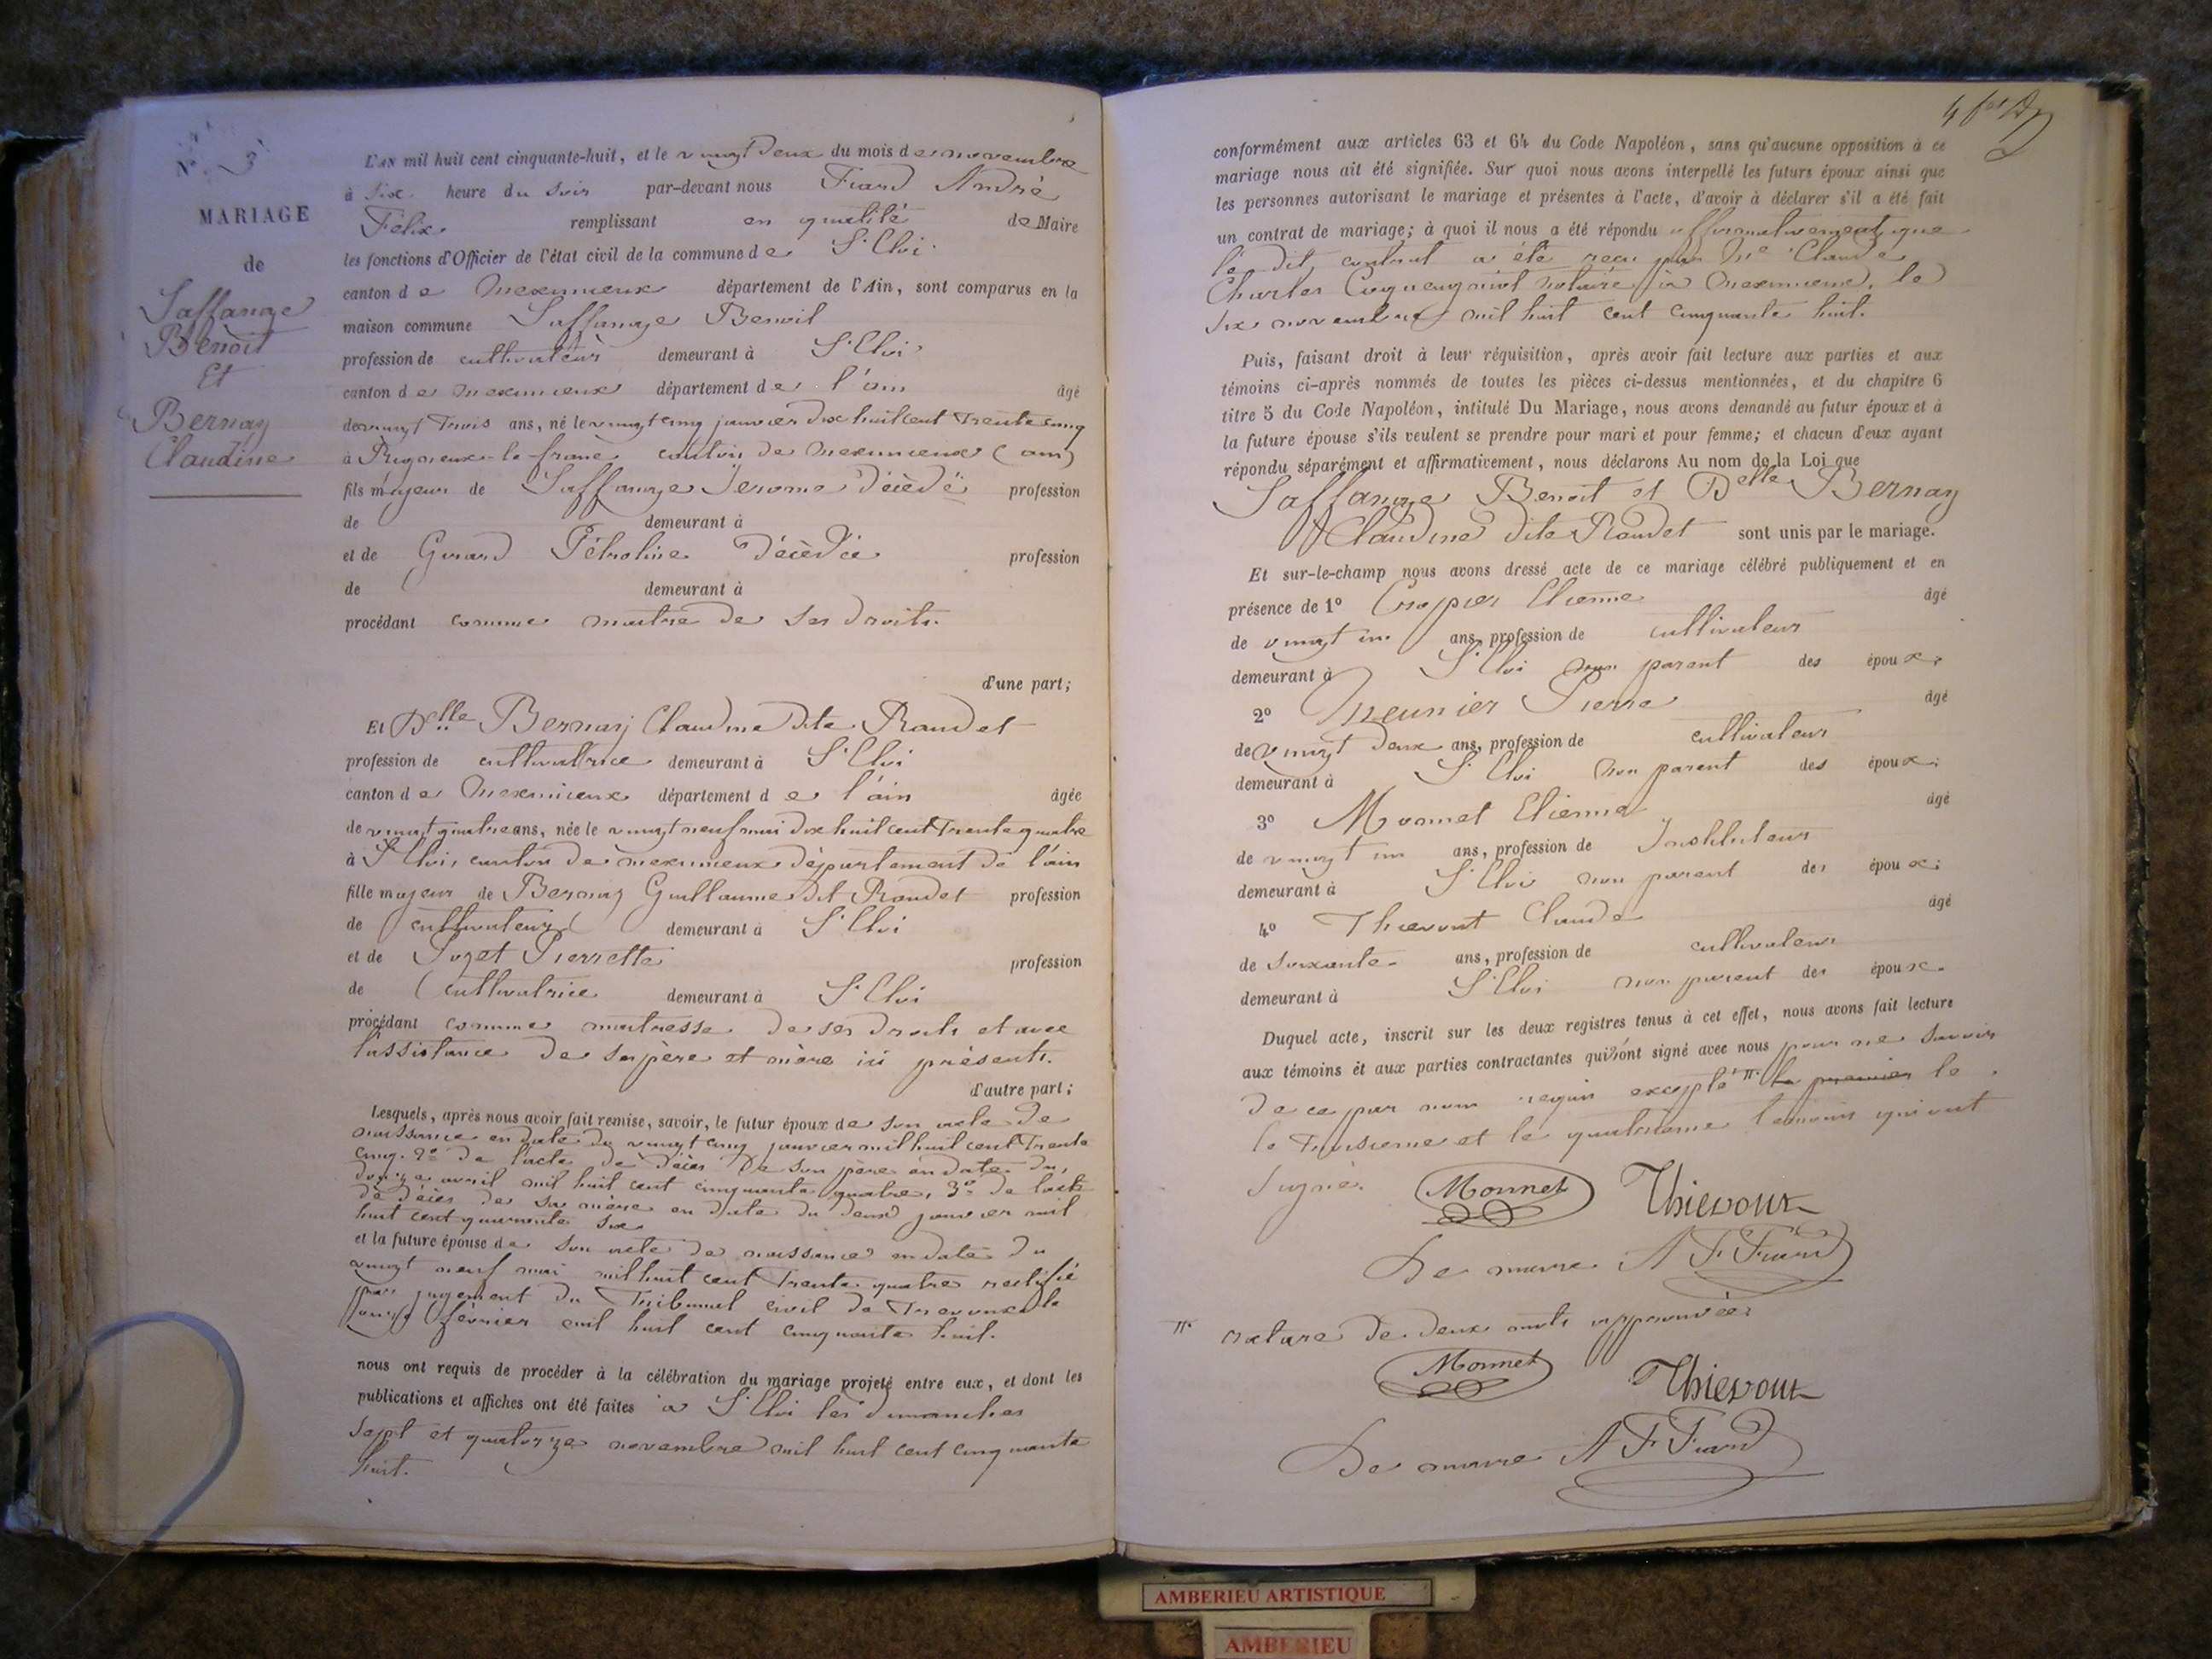 N° 3
MARIAGE
de
Saffange
Benoit
Et
Bernay
Claudine
L'AN mil huit cent cinquante-huit, et le vingt deux du mois de novembre
à six heure du soir par-devant nous Fiard André
Félix remplissant en qualité de Maire
les fonctions d'Officier de l'état civil de la commune de St Eloi
canton de Meximieux département de l'Ain, sont comparus en la
maison commune Saffange Benoit
profession de cultivateur demeurant à St Eloi
canton de Meximieux département de l'ain âgé
de vingt trois ans, né le vingt cinq janvier dix huit cent trente cinq
à Rignieux-le-franc canton de Meximieux (ain)
fils majeur de Saffange Jerome décèdé profession
de demeurant à
et de Girard Pétroline décèdée profession
de demeurant à
procédant comme maitre de ses droits.
d'une part;
Et Delle Bernay Claudine dite Raudet
profession de cultivatrice demeurant à St Eloi
canton de Meximieux département de l'ain âgée
de vingt quatre ans, née le vingt neuf mai dix huit cent trente quatre
à St Eloi, canton de meximieux département de l'ain
fille majeur de Bernay Guillaume dit Raudet profession
de cultivateur demeurant à St Eloi
et de Pierrette profession
de Cultivatrice demeurant à St Eloi
procédant comme maitresse de ses droits et avec
l'assistance de ses père et mère ici présents.
d'autre part;
Lesquels, après nous avoir fait remise, savoir, le futur époux de son acte de
naissance en date du vingt cinq janvier mil huit cent trente
cinq. 2° de l'acte de décès de son père en date du
douze avril mil huit cent cinquante quatre, 3° de l'acte
de décès de sa mère en date du deux janvier mil
huit cent quarante six
et la future épouse de son acte de naissance en date du
vingt neuf mai mil huit cent trente quatre rectifié
par jugement du Tribunal civil de Trevoux le
onze février mil huit cent cinquante huit.
nous ont requis de procéder à la célébration du mariage projeté entre eux, et dont les
publications et affiches ont été faites à St Eloi les dimanches
sept et quatorze novembre mil huit cent cinquante
huit.
conformément aux articles 63 et 64 du Code Napoléon, sans qu'aucune opposition à ce
mariage nous ait été signifiée. Sur quoi nous avons interpellé les futurs époux ainsi que
les personnes autorisant le mariage et présentes à l'acte, d'avoir à déclarer s'il a été fait
un contrat de mariage; à quoi il nous a été répondu affirmativement, que
le dit contrat a été reçu par Me Claude
Charles notaire à Meximieux, le
six novembre mil huit cent cinquante huit.
Puis, faisant droit à leur réquisition, après avoir fait lecture aux parties et aux
témoins ci-après nommés de toutes les pièces ci-dessus mentionnées, et du chapitre 6
titre 5 du Code Napoléon, intitulé Du Mariage, nous avons demandé au futur époux et à
la future épouse s'ils veulent se prendre pour mari et pour femme; et chacun d'eux ayant
répondu séparément et affirmativement, nous déclarons Au nom de la Loi que
Saffange Benoit et Delle Bernay
Claudine dite Raudet sont unis par le mariage.
Et sur-le-champ nous avons dressé acte de ce mariage célébré publiquement et en
présence de 1° Crappier Etienne âgé
de vingt un ans, profession de cultivateur
demeurant à St Eloi non parent des époux;
2° Meunier Pierre âgé
de vingt deux ans, profession de cultivateur
demeurant à St Eloi non parent des époux;
3° Monnet Etienne âgé
de vingt un ans, profession de Instituteur
demeurant à St Eloi non parent des époux;
4° Thievout Claude âgé
de soixante ans, profession de cultivateur
demeurant à St Eloi non parent des époux.
Duquel acte, inscrit sur les deux registres tenus à cet effet, nous avons fait lecture
aux témoins et aux parties contractantes qui n'ont signé avec nous pour ne savoir
de ce par nous requis excepté le premier le
le troisieme et le quatrième temoin qui ont
signé. Monnet Thievout
Le maire A F Fiard
rature de deux mots approuvée;
Monnet Thievout
Le maire A F Fiard
AMBERIEU ARTISTIQUE
AMBERIEU